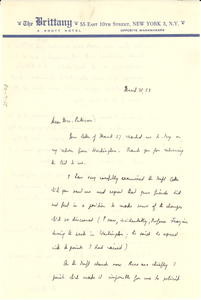 The Brittany 55 EAST 10TH STREET, NEW YORK 3, N.Y.
A KNOTT HOTEL OPPOSITE WANAMAKERS
March 31, 53
Dear Mrs. Peterson:
Your letter of March 27 reached me to-day on
my return from Washington. Thank you for returning
the list to me.
I have very carefully examined the Draft Code
which you sent me and regret that your friends did
not feel in a position to make some of the changes
which we discussed. (I saw, incidentally, Professor
during the week in Washington; he said he agreed
with the points I had raised)
As the Draft stands now there are chiefly
points which make it impossible for me to